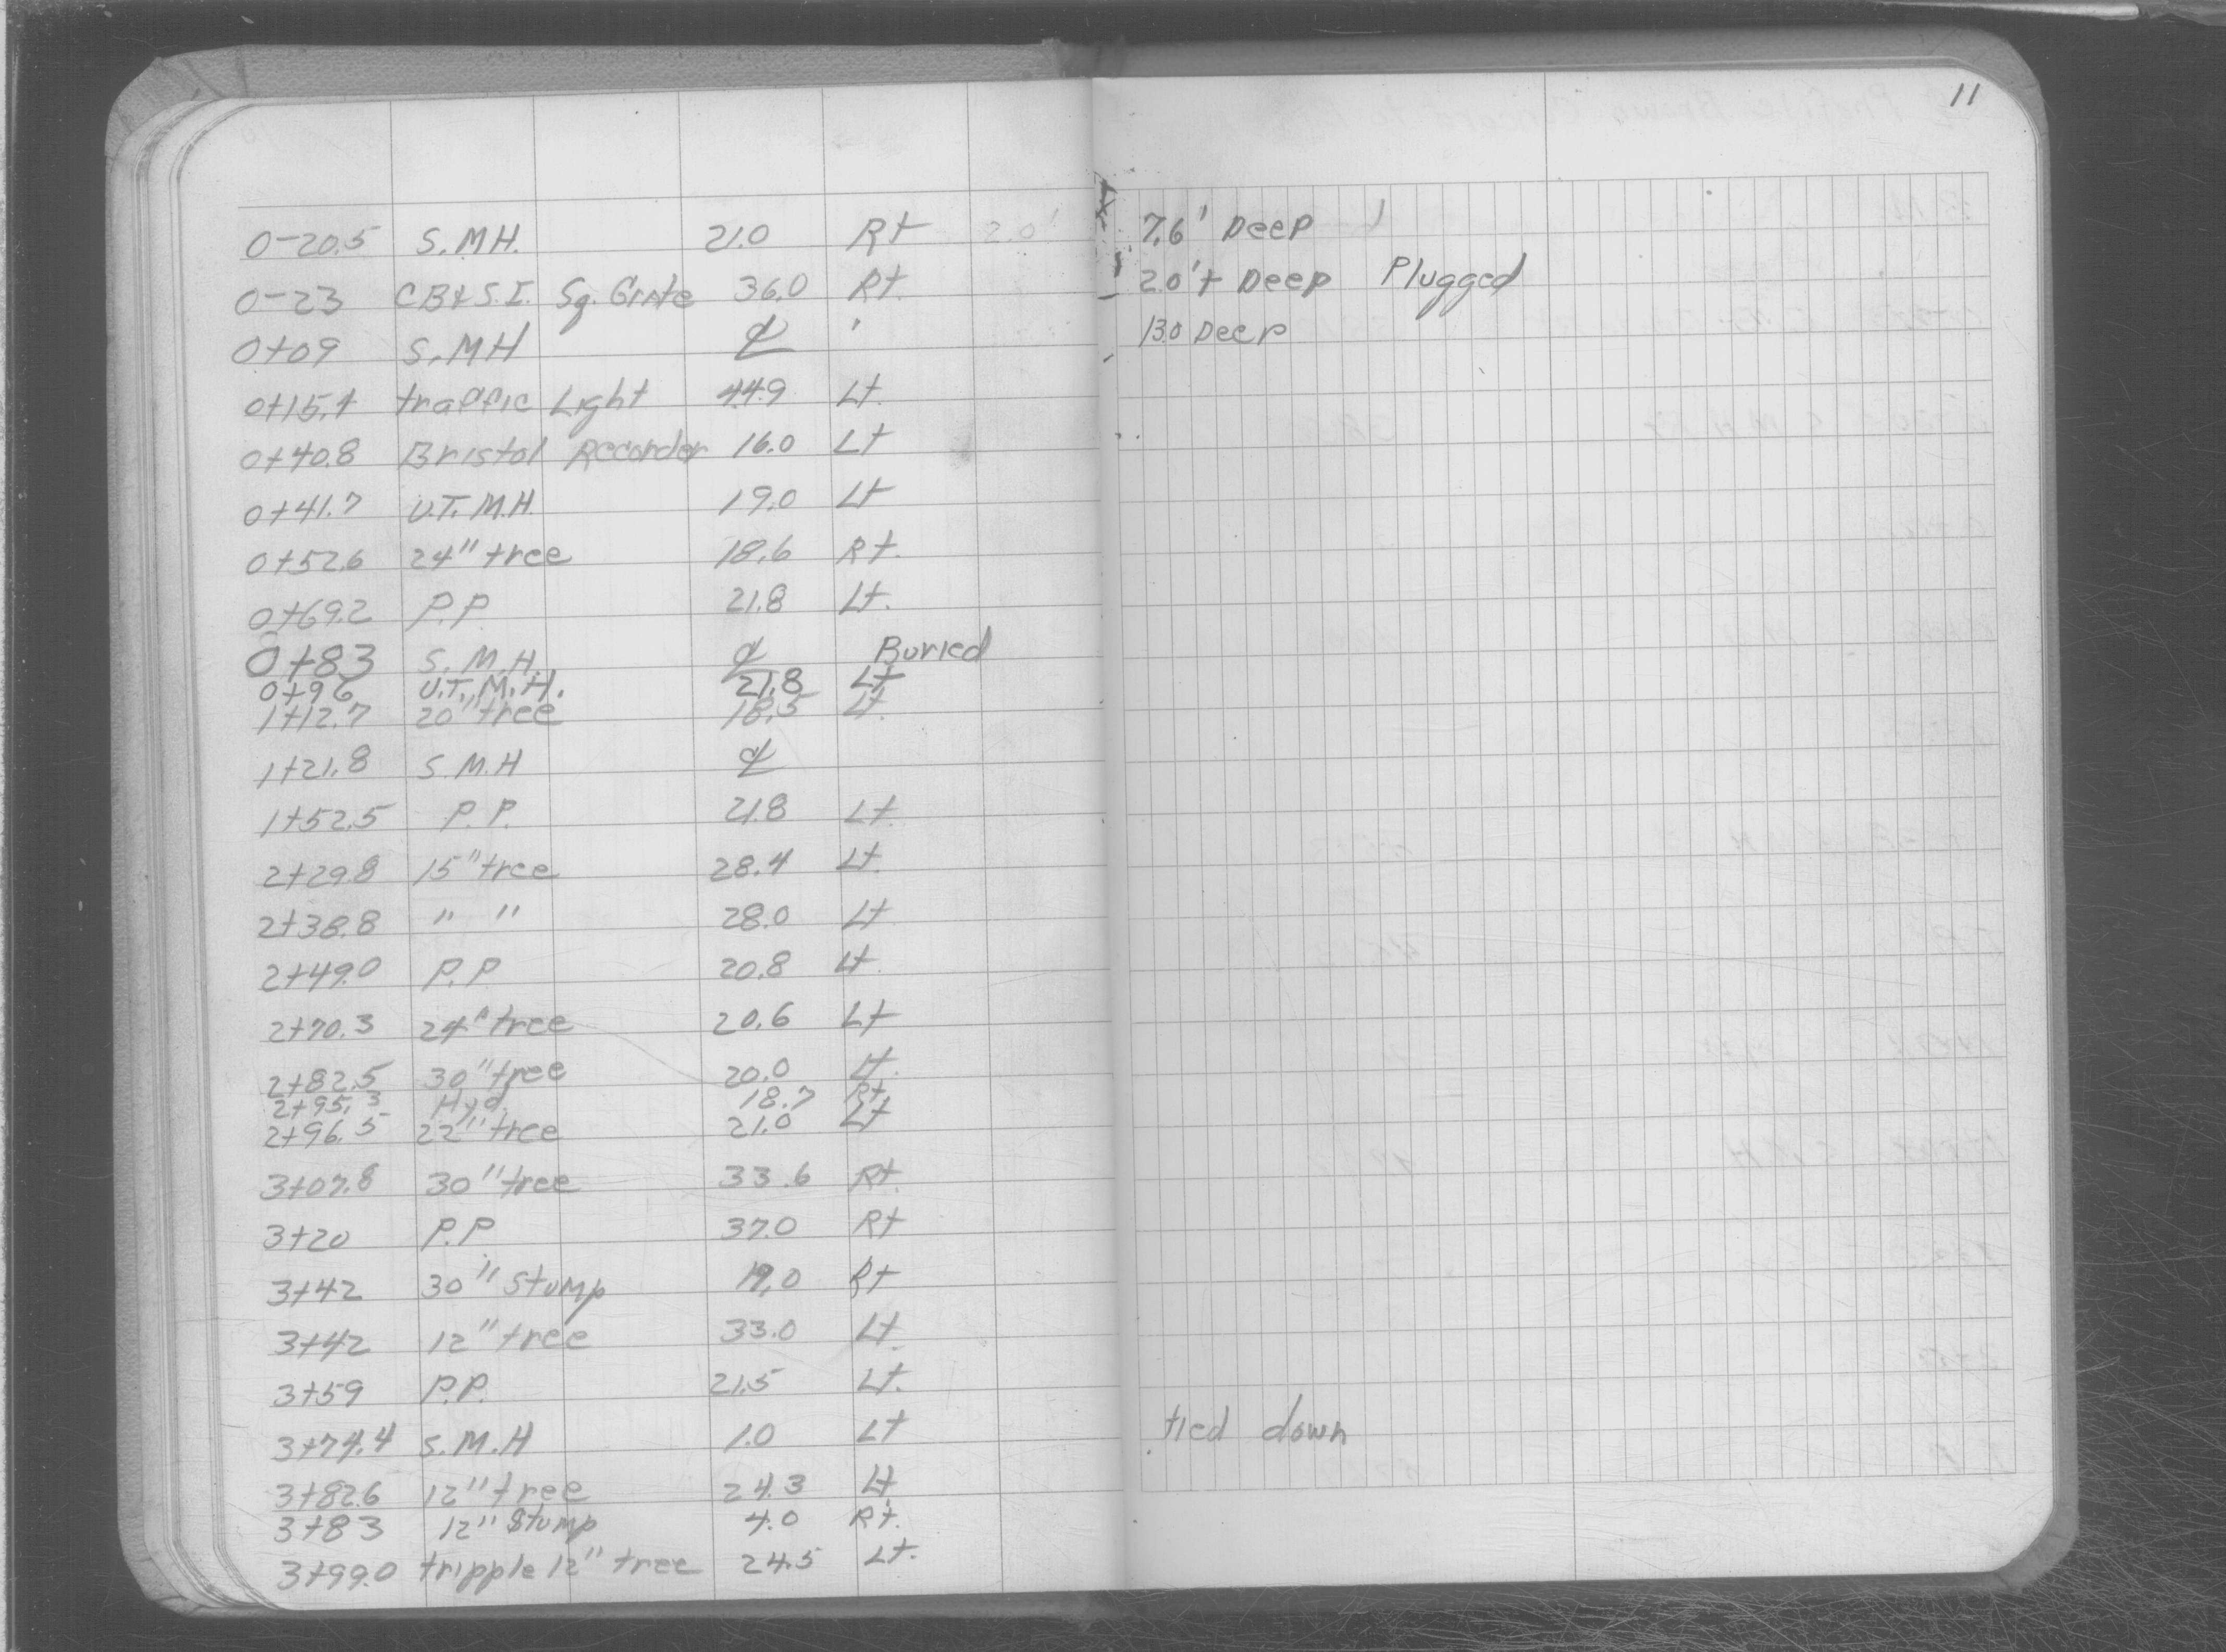 11
0-20.5 S.M.H. 21.0 Rt 2.0' 7.6' Deep
0-23 CB&S.I. Sq. Grate 36.0 Rt. 2.0'+ Deep Plugged
0+09 S.M.H ℄ 13.0 Deep
0+15.4 traffic Light 44.9 Lt.
0+40.8 Bristol Recorder 16.0 Lt
0+41.7 U.T.M.H. 19.0 Lt
0+52.6 24" tree 18.6 Rt.
0+69.2 P.P 21.8 Lt.
0+83 S.M.H. ℄ Buried
0+96 U.T.M.H. 21.8 Lt
1+12.7 20" tree 18.5 Lt.
1+21.8 S.M.H ℄
1+52.5 P.P. 21.8 Lt.
2+29.8 15" tree 28.4 Lt.
2+38.8 " " 28.0 Lt
2+49.0 P.P 20.8 Lt.
2+70.3 24" tree 20.6 Lt
2+82.5 30" tree 20.0 Lt.
2+95.3 Hyd. 18.7 Rt.
2+96.5 22" tree 21.0 Lt
3+07.8 30" tree 33.6 Rt.
3+20 P.P 37.0 Rt
3+42 30" Stump 19.0 Rt
3+42 12" tree 33.0 Lt.
3+59 P.P. 21.5 Lt.
3+74.4 S.M.H 1.0 Lt tied down
3+82.6 12" tree 24.3 Lt
3+83 12" Stump 4.0 Rt.
3+99.0 tripple 12" tree 24.5 Lt.